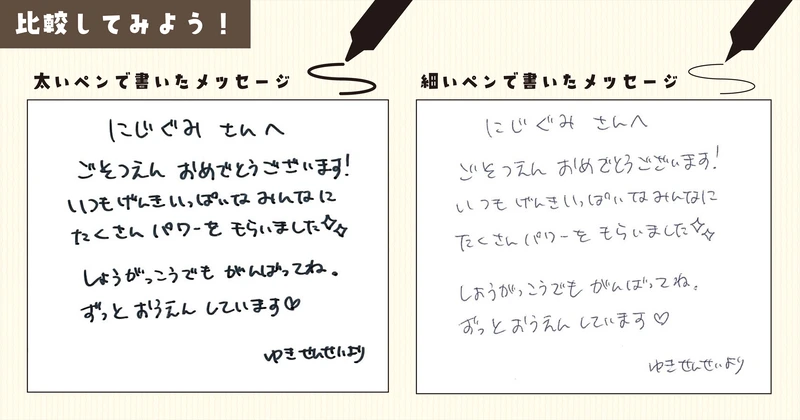 比較してみよう！
太いペンで書いたメッセージ
にじぐみ さんへ
ごそつえん おめでとうございます!
いつもげんきいっぱいな みんなに
たくさん パワーを もらいました✧✧
しょうがっこうでも がんばってね。
ずっと おうえん しています♡
ゆき せんせいより
細いペンで書いたメッセージ
にじぐみ さんへ
ごそつえん おめでとうございます!
いつも げんきいっぱいな みんなに
たくさん パワーを もらいました✧✧
しょうがっこうでも がんばってね。
ずっと おうえん しています♡
ゆき せんせいより